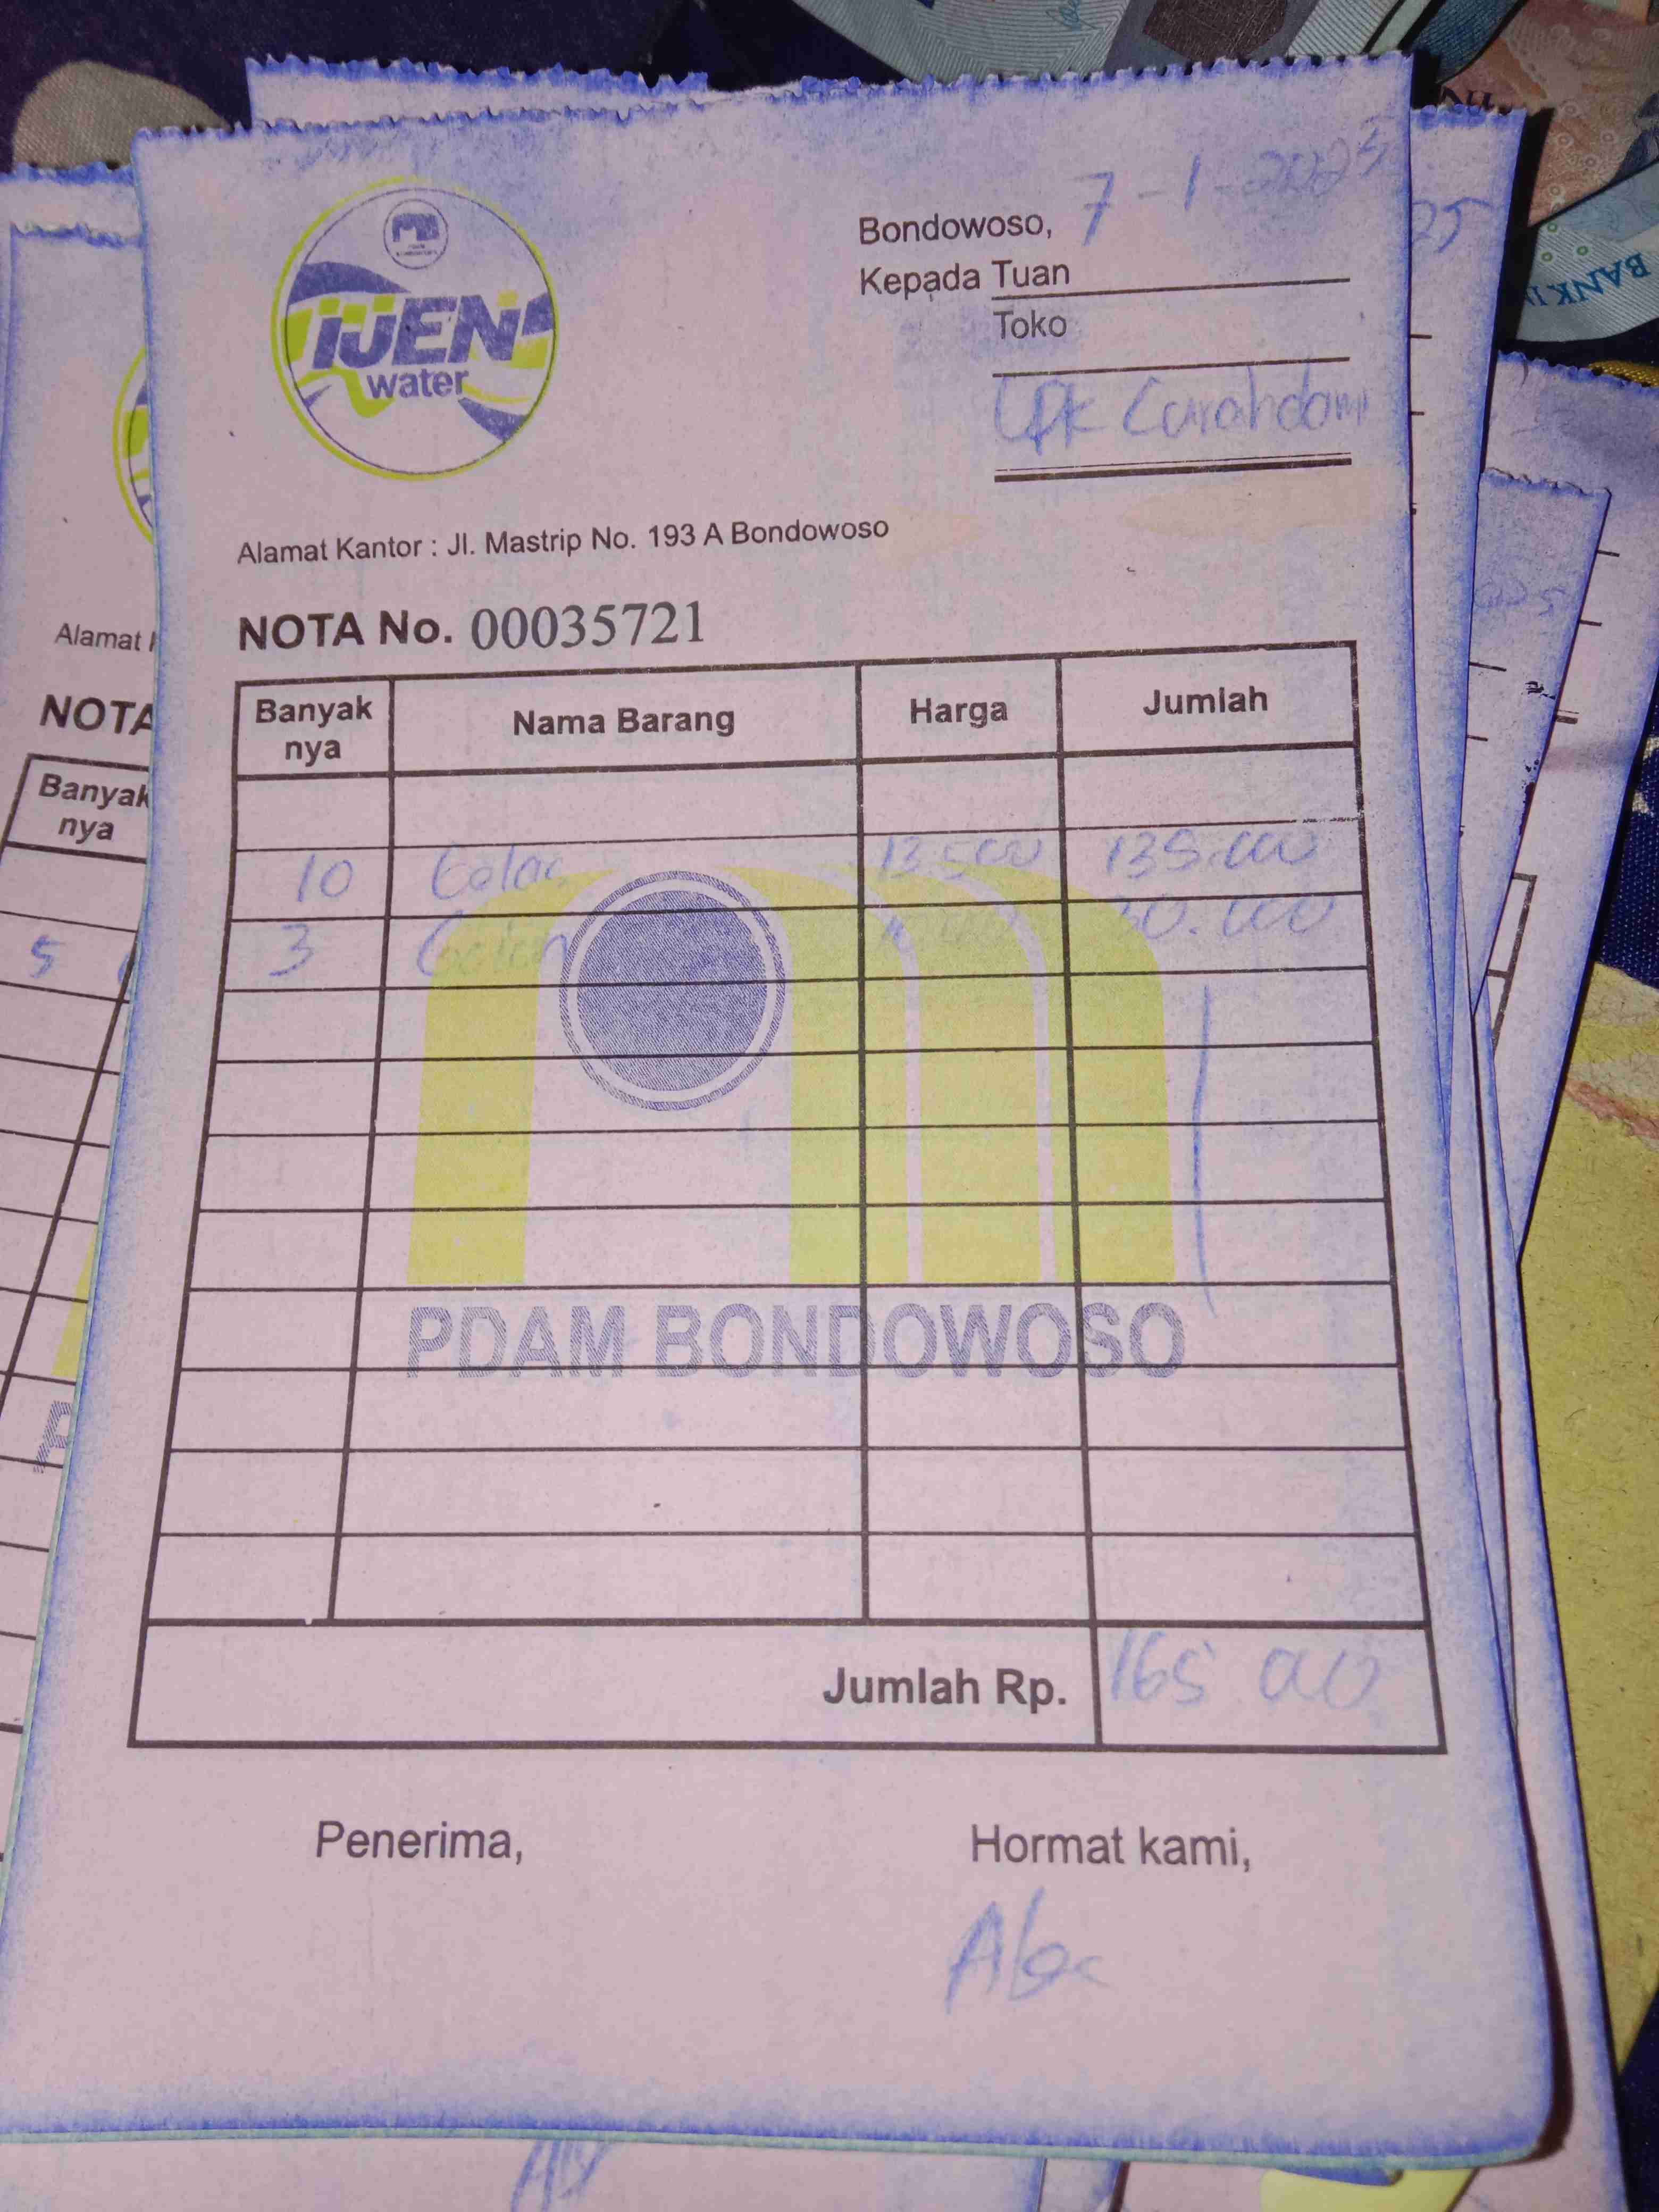 IJEN
water
Bondowoso, 7-1-2025
Kepada Tuan
Toko
LPK Curahdami
Alamat Kantor : Jl. Mastrip No. 193 A Bondowoso
NOTA No. 00035721
Banyak nya Nama Barang Harga Jumlah
10 Gelas 13.500 135.000
3 Galon 30.000
PDAM BONDOWOSO
Jumlah Rp. 165 000
Penerima, Hormat kami,
Alamat
NOTA
Banyak
nya
5
25
BANK